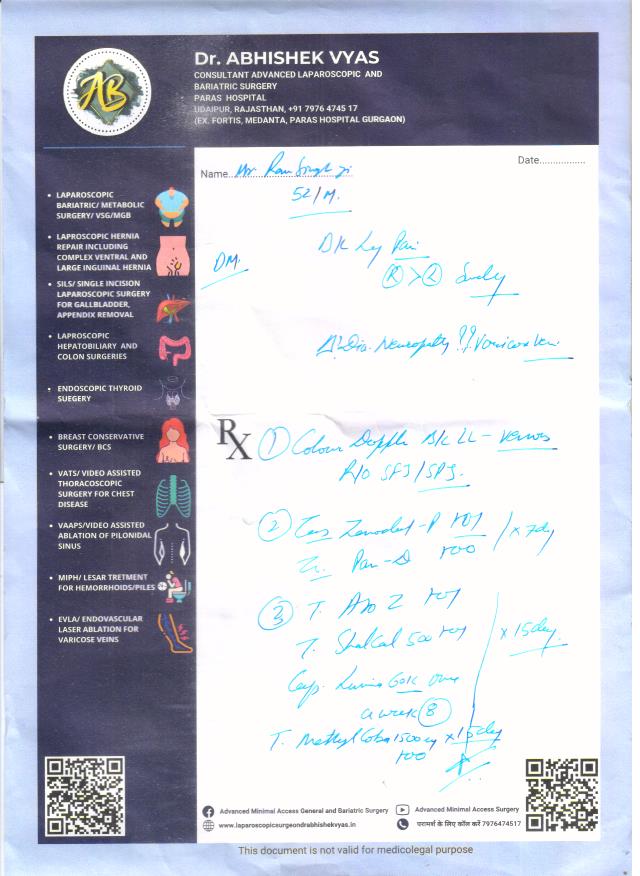 Dr. ABHISHEK VYAS
CONSULTANT ADVANCED LAPAROSCOPIC AND
BARIATRIC SURGERY
PARAS HOSPITAL
UDAIPUR, RAJASTHAN, +91 7976 4745 17
(EX. FORTIS, MEDANTA, PARAS HOSPITAL GURGAON)
AB
Date................
Name Mr Ram Singh ji
52/M.
DM.
B/L Leg Pain
(R) > (L)
Neuropathy ?? Varicose Vein
LAPAROSCOPIC
BARIATRIC/ METABOLIC
SURGERY/ VSG/MGB
LAPROSCOPIC HERNIA
REPAIR INCLUDING
COMPLEX VENTRAL AND
LARGE INGUINAL HERNIA
SILS/ SINGLE INCISION
LAPAROSCOPIC SURGERY
FOR GALLBLADDER,
APPENDIX REMOVAL
LAPROSCOPIC
HEPATOBILIARY AND
COLON SURGERIES
ENDOSCOPIC THYROID
SUEGERY
BREAST CONSERVATIVE
SURGERY/ BCS
VATS/ VIDEO ASSISTED
THORACOSCOPIC
SURGERY FOR CHEST
DISEASE
VAAPS/VIDEO ASSISTED
ABLATION OF PILONIDAL
SINUS
MIPH/ LESAR TRETMENT
FOR HEMORRHOIDS/PILES
EVLA/ ENDOVASCULAR
LASER ABLATION FOR
VARICOSE VEINS
RX
1 Colour Doppler B/L LL - Venous
R/O SFJ/SPJ.
2 P 101 x 7day
Pan-D 100
3 T. A to Z 101
T. Shelcal 500 101 x 15day
Cap. 60K once
a week 8
T. Methylcobal 1500 x 15day
100
Advanced Minimal Access General and Bariatric Surgery
Advanced Minimal Access Surgery
www.laparoscopicsurgeondrabhishekvyas.in
परामर्श के लिए कॉल करें 7976474517
This document is not valid for medicolegal purpose